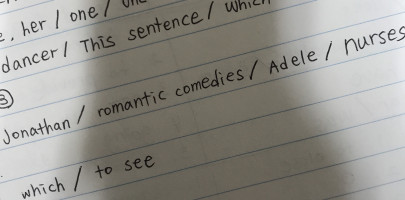 , her / one /
dancer / This sentence / which
③
Jonathan / romantic comedies / Adele / nurses
which / to see